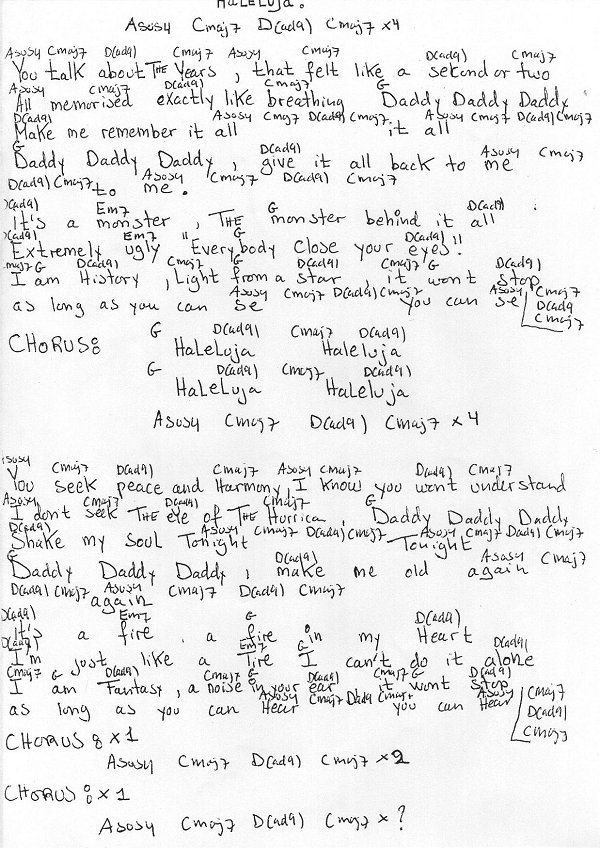 HaLeLuja.
Asus4 Cmaj7 D(ad9) Cmaj7 x4
Asus4 Cmaj7 D(ad9) Cmaj7 Asus4 Cmaj7 D(ad9) Cmaj7
You talk about THE Years , that felt like a second or two
Asus4 Cmaj7 D(ad9) Cmaj7 G
All memorised exactly like breathing Daddy Daddy Daddy
D(ad9) Asus4 Cmaj7 D(ad9) Cmaj7, Asus4 Cmaj7 D(ad9) Cmaj7
Make me remember it all it all
G D(ad9) Asus4 Cmaj7
Daddy Daddy Daddy , give it all back to me
D(ad9) Cmaj7 Asus4 Cmaj7 D(ad9) Cmaj7
to me.
D(ad9) Em7 G D(ad9)
It's a monster , THE monster behind it all
D(ad9) Em7 G D(ad9)
Extremely ugly "Everybody Close your eyes!"
maj7 G D(ad9) Cmaj7 G D(ad9) Cmaj7 G D(ad9)
I am History , Light from a star , it wont stop
Asus4 Cmaj7 D(ad9) Cmaj7 Asus4 Cmaj7
as long as you can se you can se D(ad9
Cmaj7
G D(ad9) Cmaj7 D(ad9)
CHORUS: HaLeLuja HaLeluja
G D(ad9) Cmaj7 D(ad9)
HaLeLuja HaLeluja
Asus4 Cmaj7 D(ad9) Cmaj7 x4
Asus4 Cmaj7 D(ad9) Cmaj7 Asus4 Cmaj7 D(ad9) Cmaj7
You seek peace and Harmony, I know you wont understand
Asus4 Cmaj7 D(ad9) Cmaj7 G
I don't seek THE eye of THE Hurrica , Daddy Daddy Daddy
D(ad9) Asus4 Cmaj7 D(ad9) Cmaj7 Asus4 Cmaj7 D(ad9) Cmaj7
Shake my soul Tonight Tonight
G D(ad9) Asus4 Cmaj7
Daddy Daddy Daddy , make me old again
D(ad9) Cmaj7 Asus4 Cmaj7 D(ad9) Cmaj7
again
D(ad9) Em7 G D(ad9)
It's a fire , a fire in my Heart
D(ad9) Em7 G D(ad9)
I'm just like a Tire I can't do it alone
Cmaj7 G D(ad9) Cmaj7 G D(ad9) Cmaj7 G D(ad9)
I am Fantasy , a noise in your ear , it wont stop
Asus4 Cmaj7 Cmaj7 Asus4 Cmaj7
as long as you can Hear you can Hear D(ad9)
Cmaj7
CHORUS : x1
Asus4 Cmaj7 D(ad9) Cmaj7 x2
CHORUS : x1
Asus4 Cmaj7 D(ad9) Cmaj7 x ?